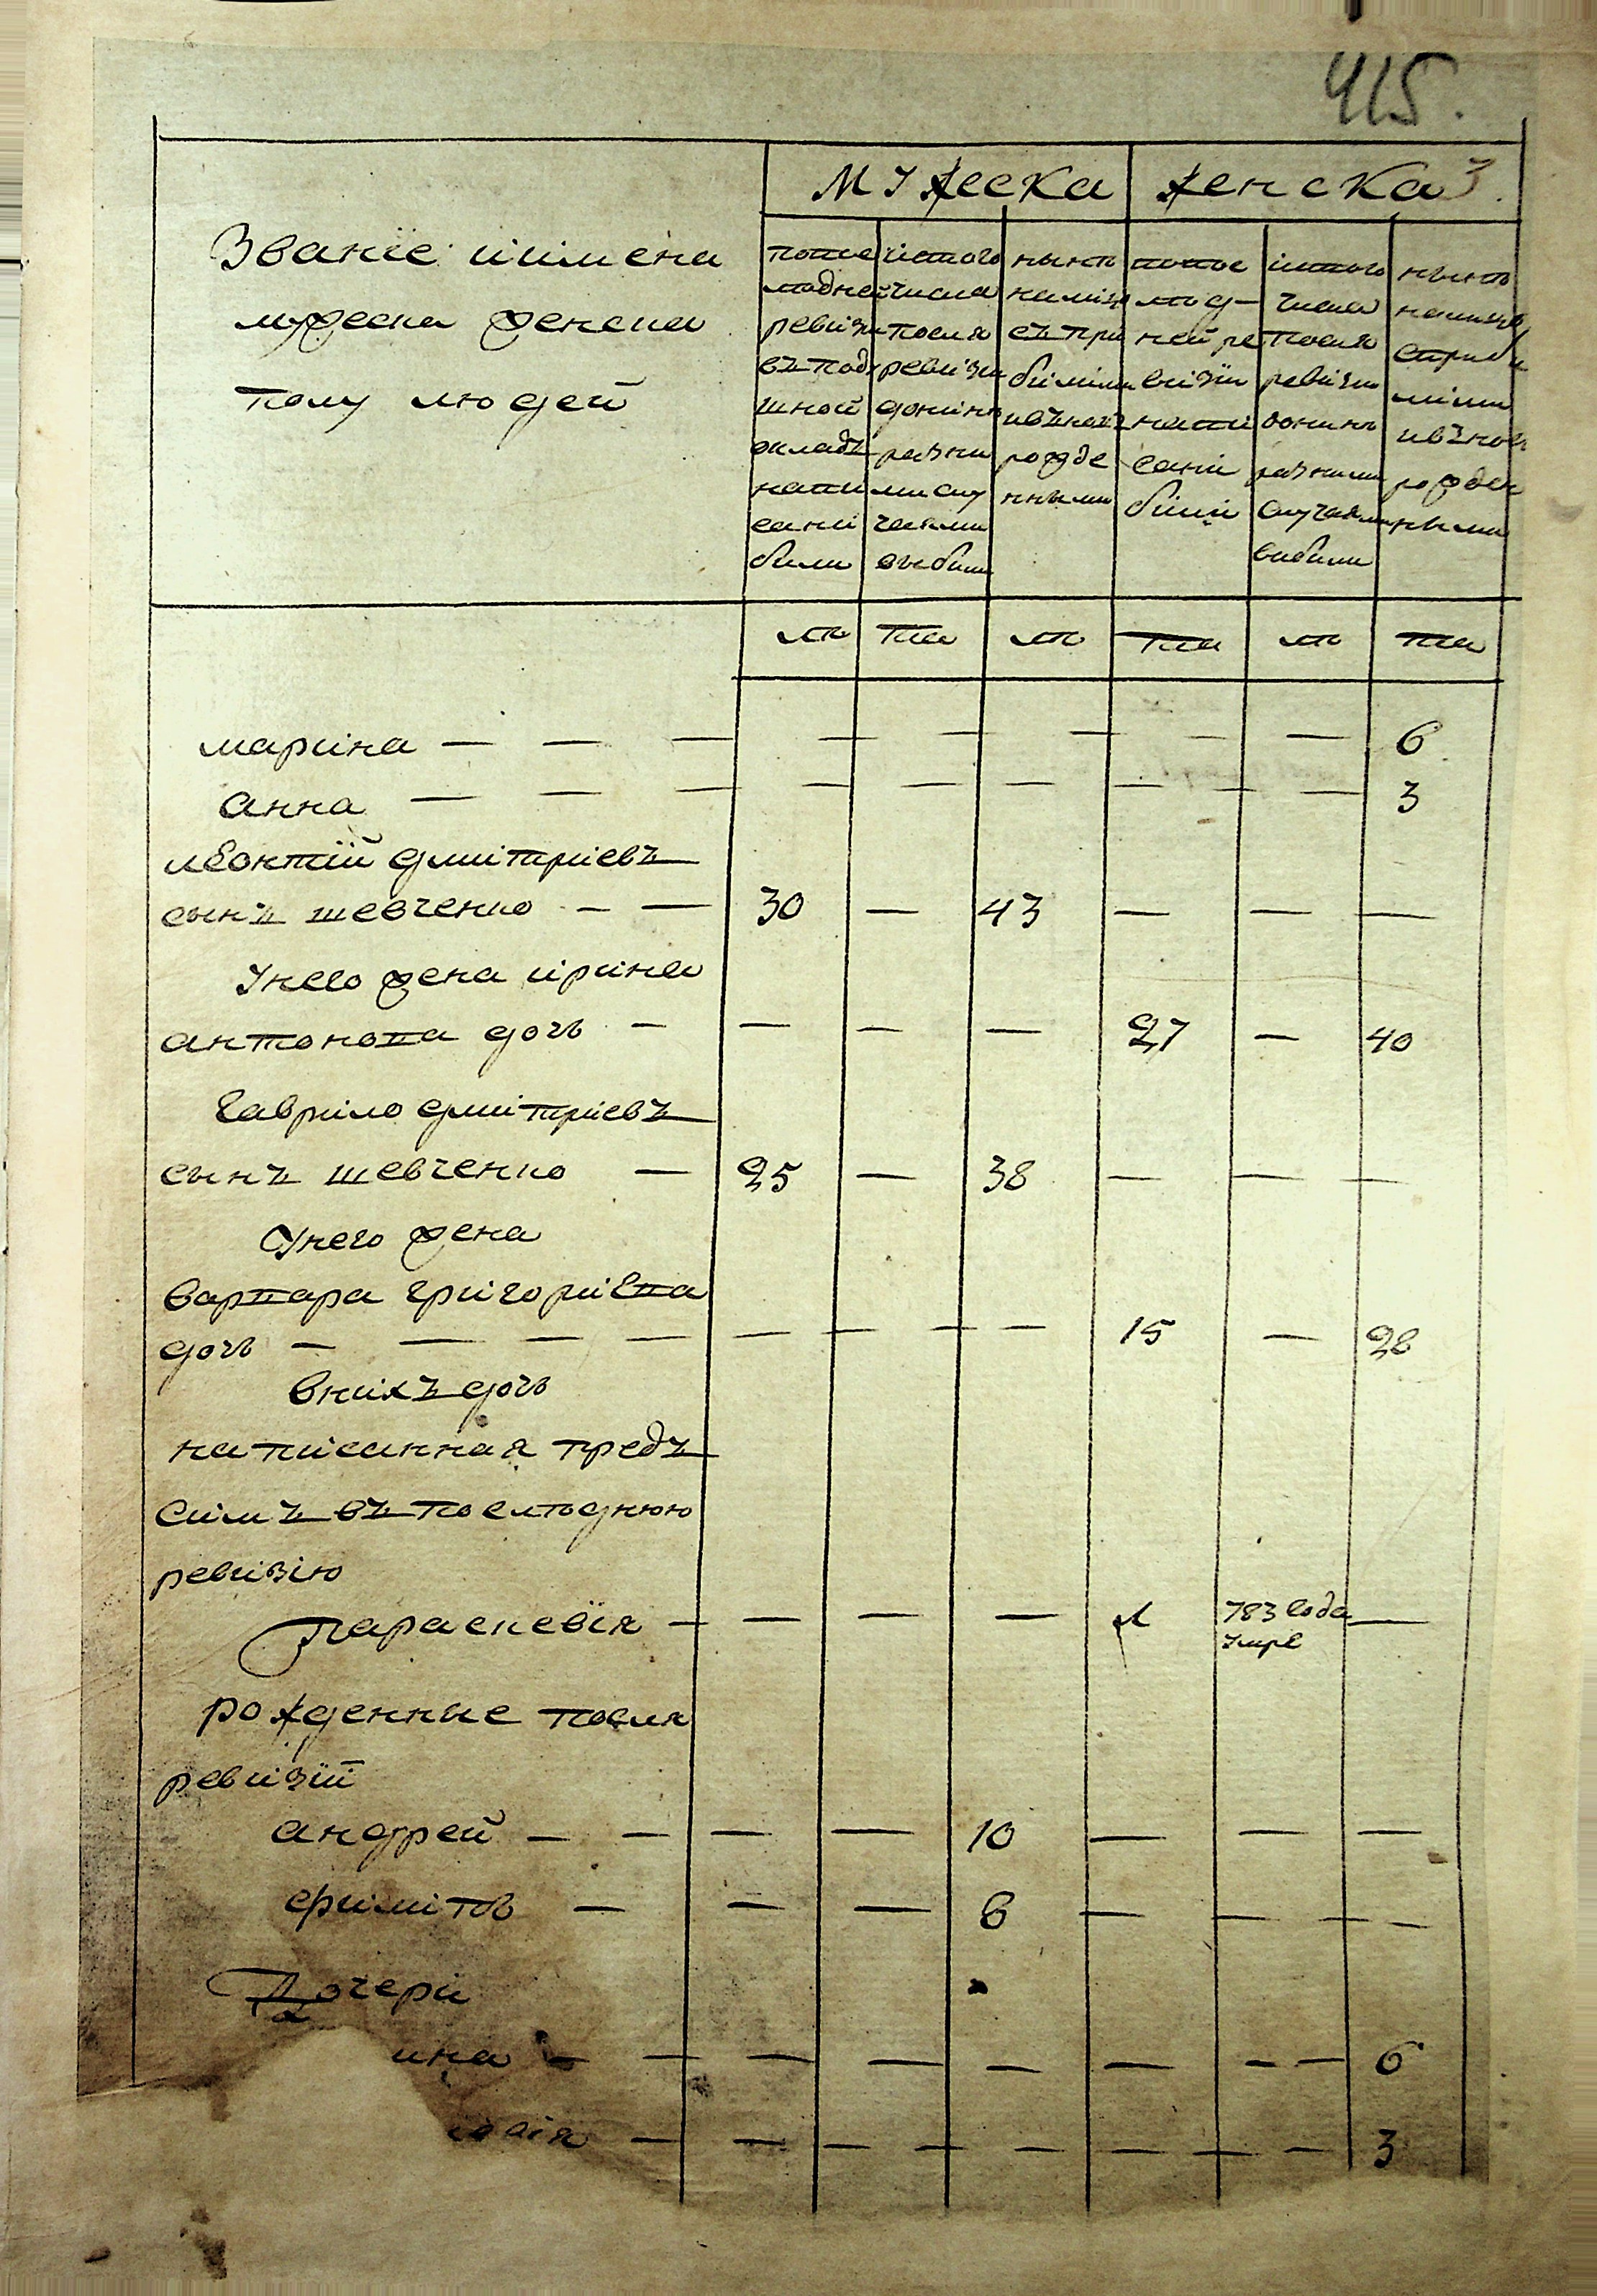 415.
мужеска женска
Званїе иимена
мужеска женска
полу людей
после
дней
ревизи
въ под
шной
окладъ
напи
сани
били
истого
числа
после
ревизи
донинѣ
разни
ми слу
чаями
выбили
нынѣ
налиц
съ при
билими
ивъновъ
рожде
нными
посл
ѣд-
ней ре
визїи
напи
сани
били
истого
числа
после
ревизи
донинѣ
разними
случаями
вибили
нынѣ
налицо
сприбы
лими
ивъновъ
рожден
ными
лѣ та лѣ та лѣ та
марина — — — — — — — — 6
анна — — — — — — — — — 3
леонтїй дмитриевъ
сынъ шевченко — — 30 — 43 — — —
Унего жена ирина
антонова дочь — — — — 27 — 40
гаврило дмитриевъ
сынъ шевченко — 25 — 38 — — —
Унего жена
варвара григориевна
дочь — — — — — — — — 15 — 28
внихъ дочь
написанная предъ
симъ въ последнюю
ревизию
Параскевїя — — — — 1 783 года —
умре
рожденные после
ревизїй
андрей — — — — 10 — — —
ефимъ — — — 8 — — — —
Дочери
ина — — — — — — — — 6
— — — — — — — — 3